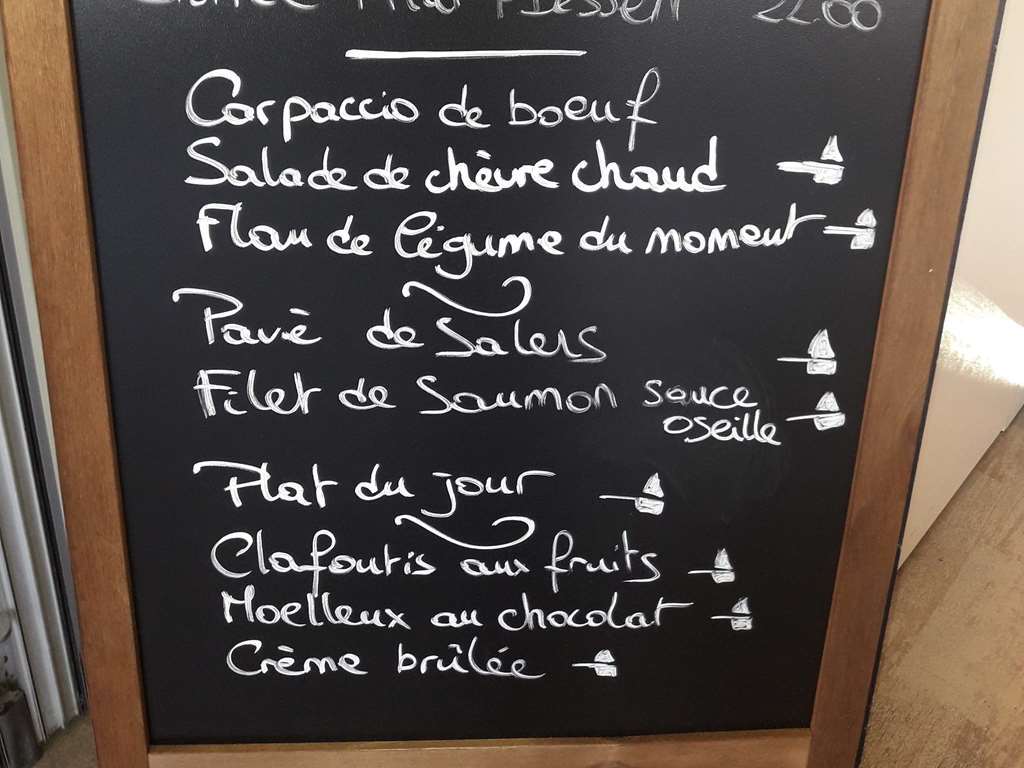 22.00
Carpaccio de boeuf
Salade de chèvre chaud
Flan de légume du moment
Pavé de Salers
Filet de Saumon sauce
oseille
Plat du jour
Clafoutis aux fruits
Moelleux au chocolat
Crème brûlée